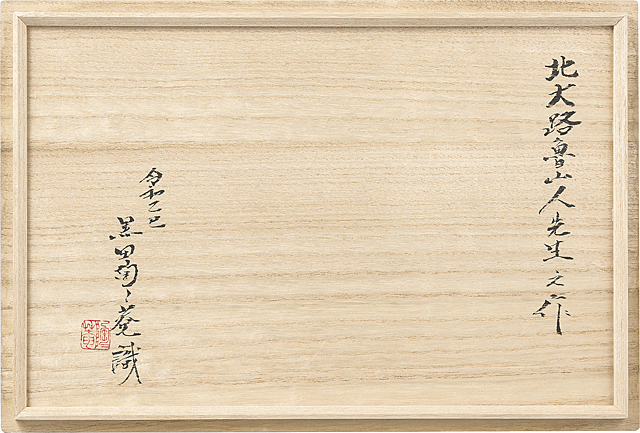 北大路魯山人先生之作
令和乙巳
黒田陶々菴識